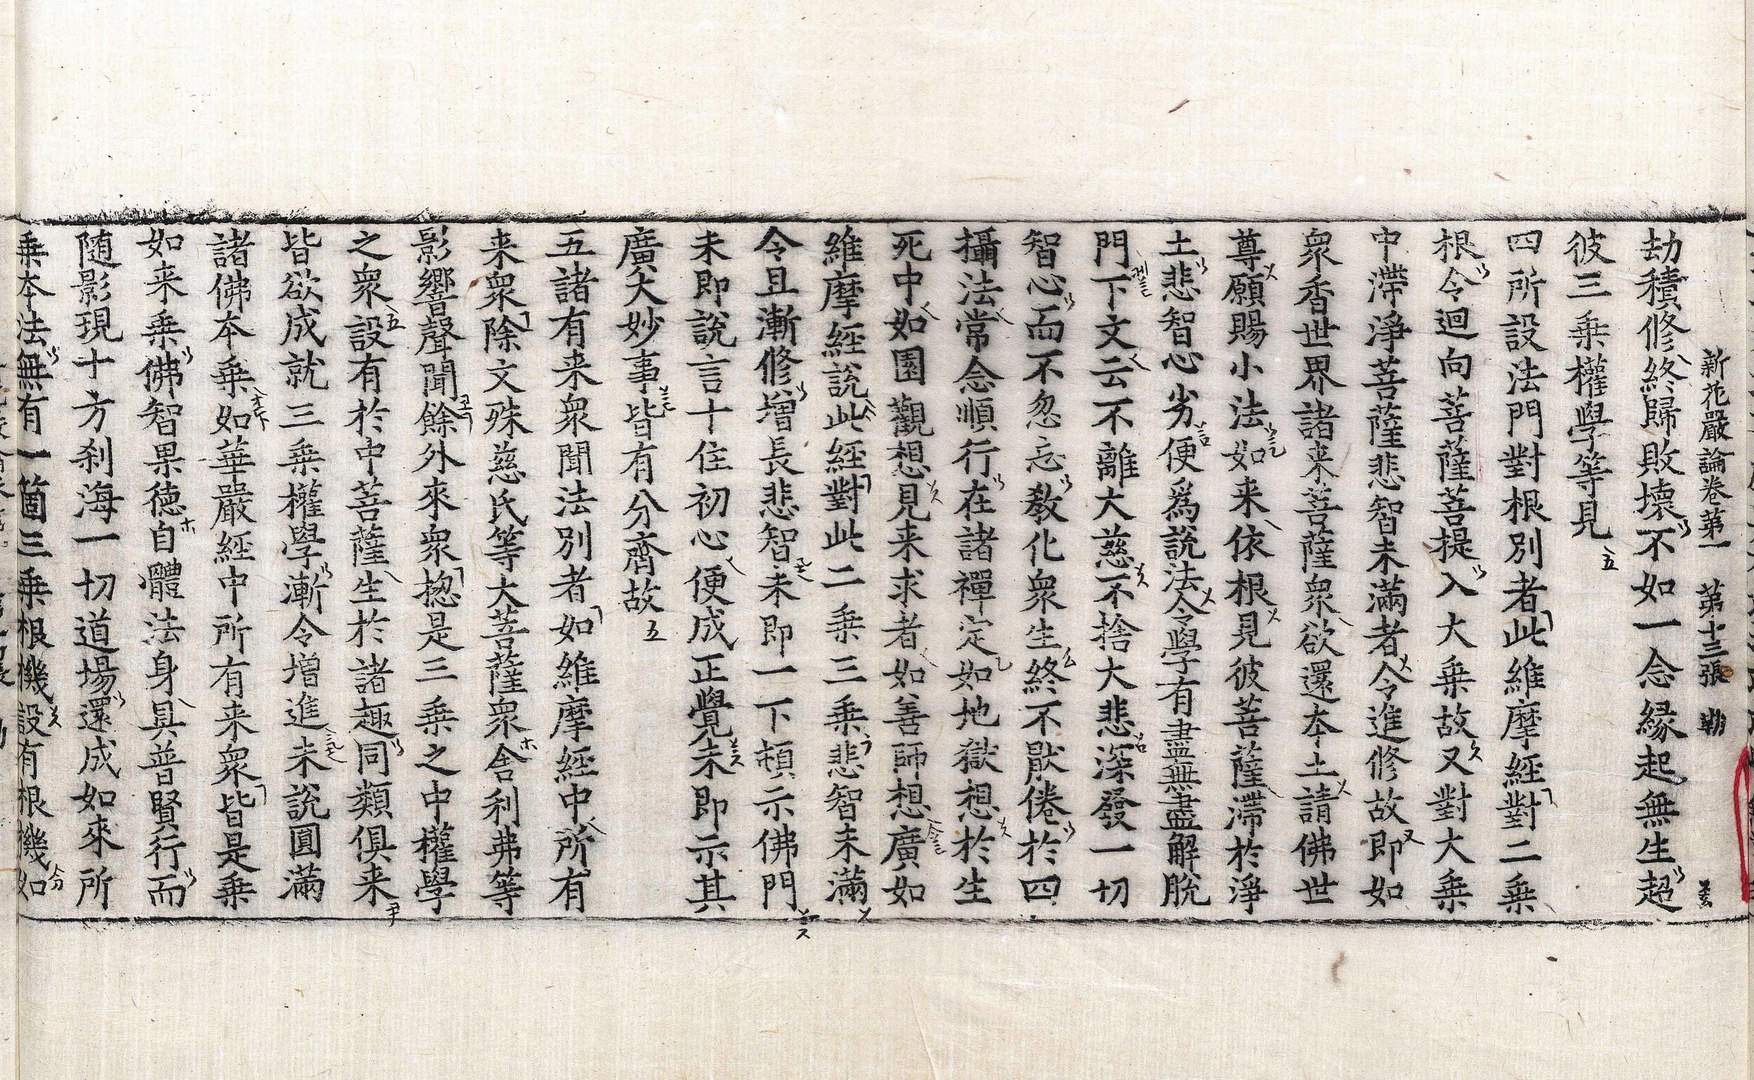 新花嚴論卷第一 第十三張 勒
劫積修終歸敗壞不如一念緣起無生超
彼三乗權學等見
四所設法門對根別者此維摩經對二乗
根令迴向菩薩菩提入大乗故又對大乗
中滯淨菩薩悲智未滿者令進修故即如
衆香世界諸来菩薩衆欲還本土請佛世
尊願賜小法如来依根見彼菩薩滯於淨
土悲智心劣便爲說法令學有盡無盡解脫
門下文云不離大慈不捨大悲深發一切
智心而不忽忘教化衆生終不厭倦於四
攝法常念順行在諸禪定如地獄想於生
死中如園觀想見来求者如善師想廣如
維摩經說此經對此二乗三乗悲智未滿
令且漸修增長悲智未即一下頓示佛門
未即說言十住初心便成正覺未即示其
廣大妙事皆有分齊故
五諸有来衆聞法別者如維摩經中所有
来衆除文殊慈氏等大菩薩衆舍利弗等
影響聲聞餘外來衆揔是三乗之中權學
之衆設有於中菩薩生於諸趣同類俱来
皆欲成就三乗權學漸令增進未說圓滿
諸佛本乗如華嚴經中所有来衆皆是乗
如来乗佛智果德自體法身具普賢行而
随影現十方刹海一切道場還成如來所
乗本法無有一箇三乗根機設有根機如